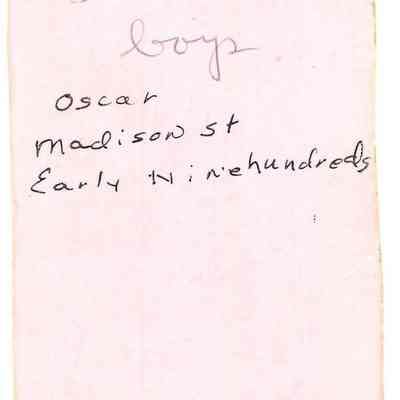 boys
Oscar
Madison st
Early Ninehundreds